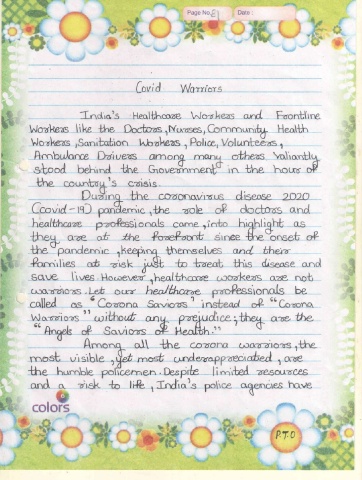 Page No. E1 Date :
Covid Warriors
India's Healthcare Workers and Frontline
Workers like the Doctors, Nurses, Community Health
Workers, Sanitation Workers, Police, Volunteers,
Ambulance Drivers among many others valiantly
stood behind the Government in the hour of
the country's crisis.
During the coronavirus disease 2020
(Covid-19) pandemic, the role of doctors and
healthcare professionals came, into highlight as
they are at the forefront since the onset of
the pandemic, keeping themselves and their
families at risk just to treat this disease and
save lives. However, healthcare workers are not
warriors. Let our healthcare professionals be
called as "Corona Saviors" instead of "Corona
Warriors" without any prejudice; they are the
"Angels of Saviors of Health."
Among all the corona warriors, the
most visible, yet most underappreciated, are
the humble policemen. Despite limited resources
and a risk to life, India's police agencies have
colors
P.T.O